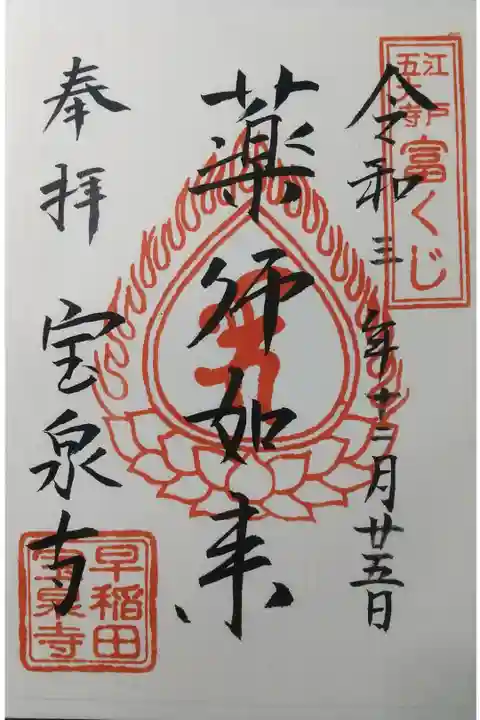 江戸
五大寺
富くじ
令和三年十二月廿五日
薬師如来
奉拝
宝泉寺
早稲田
宝泉寺